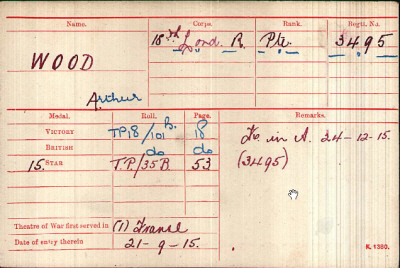 Name. Corps. Rank. Regtl. No.
WOOD 18th Lond. R. Pte. 3495
Arthur
Medal. Roll. Page. Remarks.
VICTORY TP18/101 B. 18 K. in A. 24-12-15.
BRITISH do do (3495)
15. STAR T.P./35B 53
Theatre of War first served in (1) France
Date of entry therein 21-9-15. K. 1380.